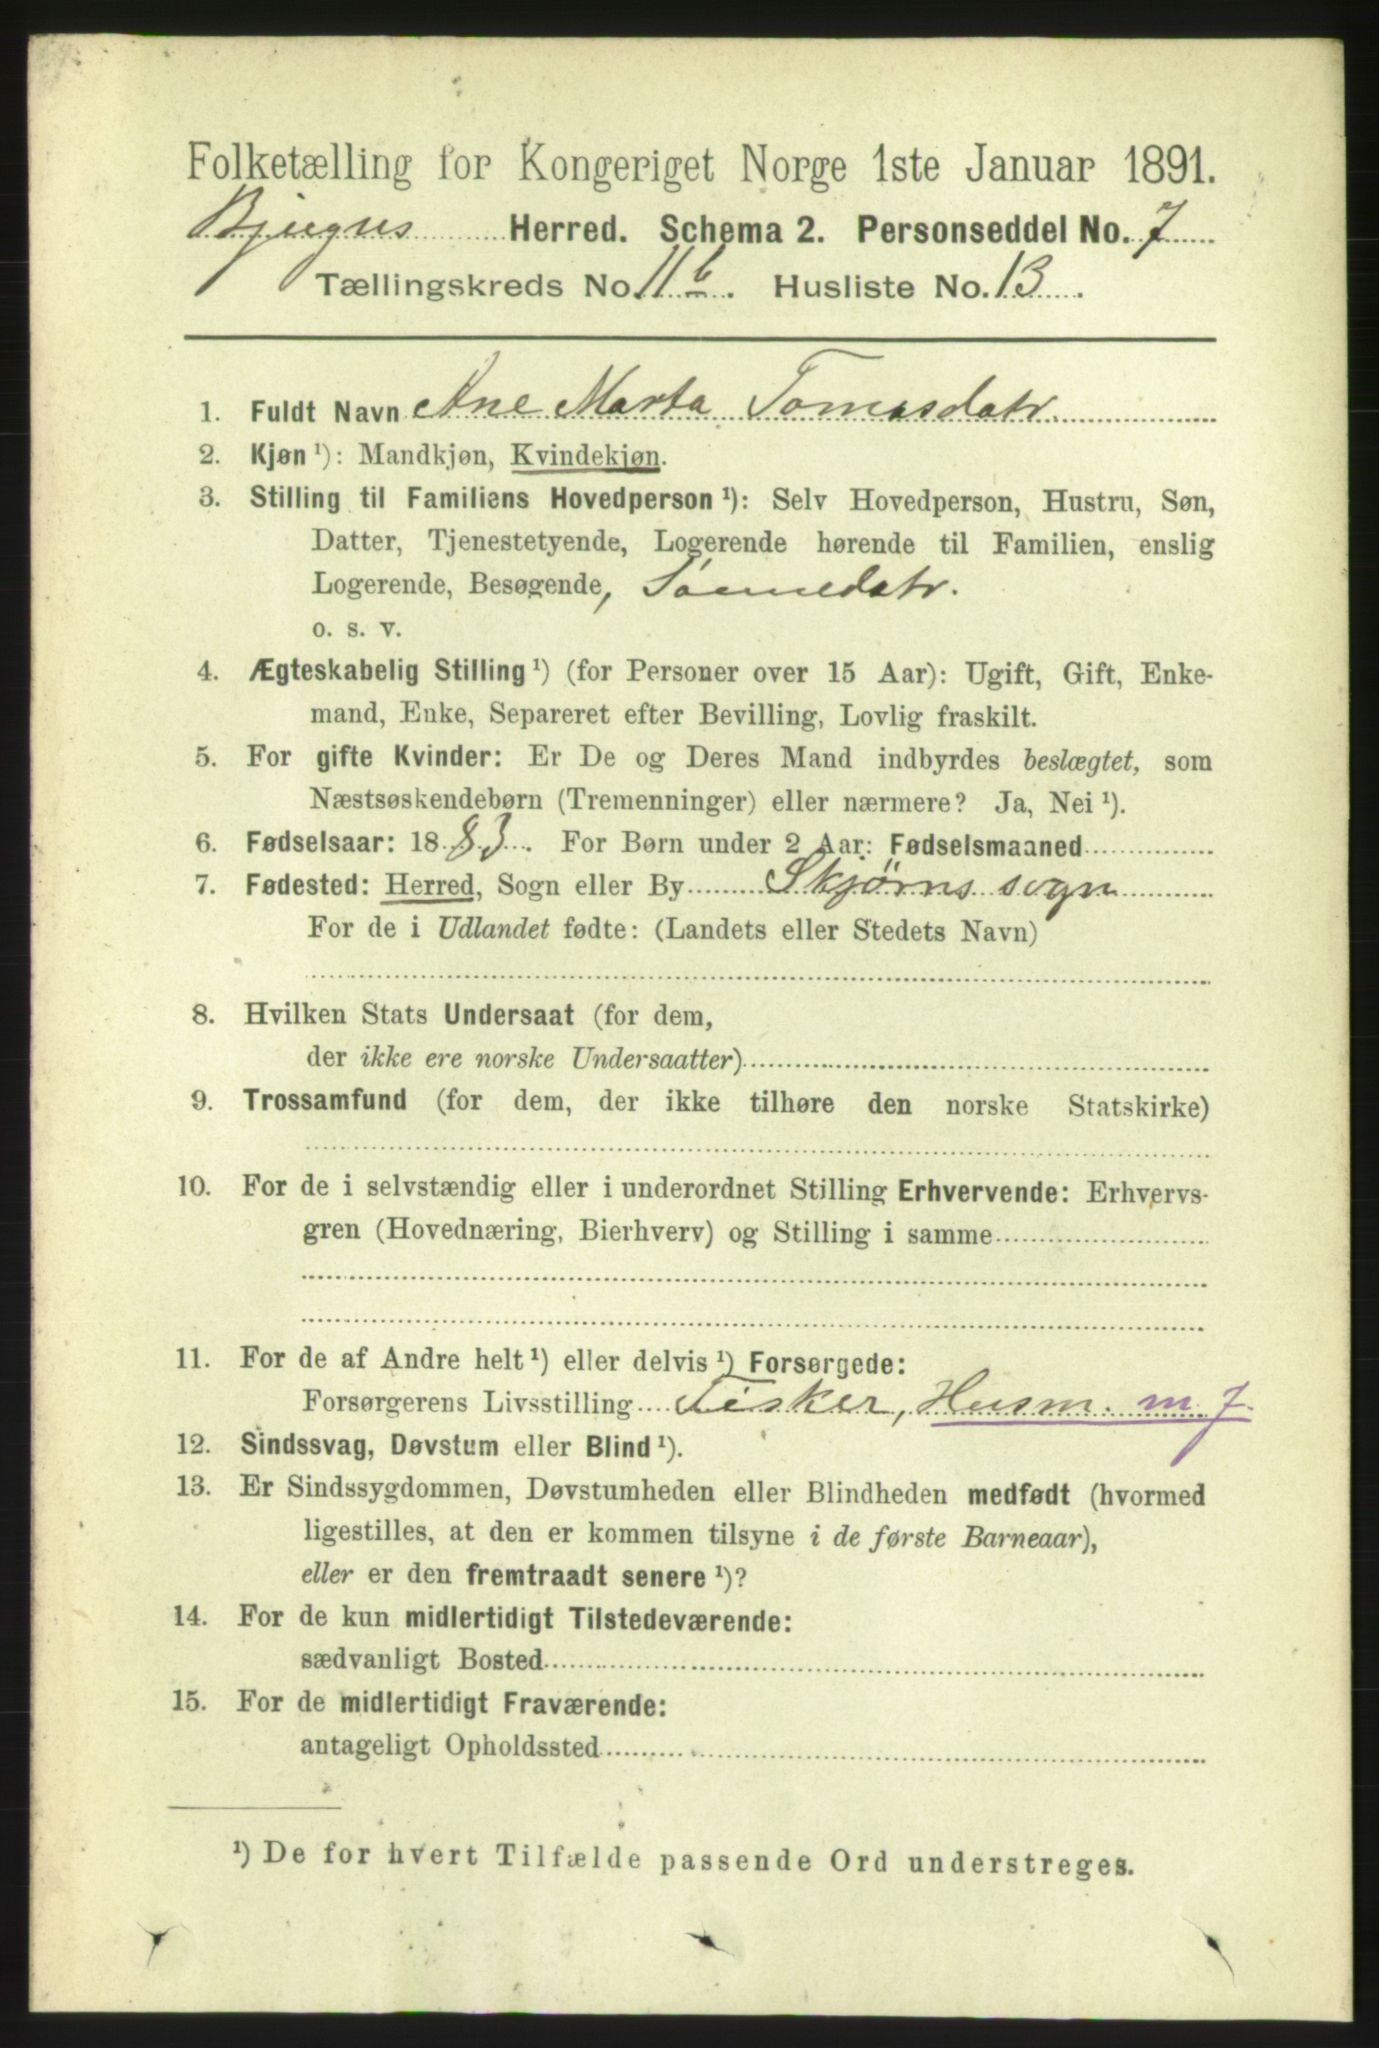 Folketælling for Kongeriget Norge 1ste Januar 1891.
Bjugns Herred. Schema 2. Personseddel No. 7
Tællingskreds No. 11 b. Husliste No. 13
1. Fuldt Navn Ane Marta Tomasdatr.
2. Kjøn ¹): Mandkjøn, Kvindekjøn.
3. Stilling til Familiens Hovedperson ¹): Selv Hovedperson, Hustru, Søn,
Datter, Tjenestetyende, Logerende hørende til Familien, enslig
Logerende, Besøgende, Sønnedatr.
o. s. v.
4. Ægteskabelig Stilling ¹) (for Personer over 15 Aar): Ugift, Gift, Enke-
mand, Enke, Separeret efter Bevilling, Lovlig fraskilt.
5. For gifte Kvinder: Er De og Deres Mand indbyrdes beslægtet, som
Næstsøskendebørn (Tremenninger) eller nærmere? Ja, Nei ¹).
6. Fødselsaar: 1883. For Børn under 2 Aar: Fødselsmaaned
7. Fødested: Herred, Sogn eller By Skjørns sogn
For de i Udlandet fødte: (Landets eller Stedets Navn)
8. Hvilken Stats Undersaat (for dem,
der ikke ere norske Undersaatter)
9. Trossamfund (for dem, der ikke tilhøre den norske Statskirke)
10. For de i selvstændig eller i underordnet Stilling Erhvervende: Erhvervs-
gren (Hovednæring, Bierhverv) og Stilling i samme
11. For de af Andre helt ¹) eller delvis ¹) Forsørgede:
Forsørgerens Livsstilling Fisker, Husm. m. J.
12. Sindssvag, Døvstum eller Blind ¹).
13. Er Sindssygdommen, Døvstumheden eller Blindheden medfødt (hvormed
ligestilles, at den er kommen tilsyne i de første Barneaar),
eller er den fremtraadt senere ¹)?
14. For de kun midlertidigt Tilstedeværende:
sædvanligt Bosted
15. For de midlertidigt Fraværende:
antageligt Opholdssted
¹) De for hvert Tilfælde passende Ord understreges.